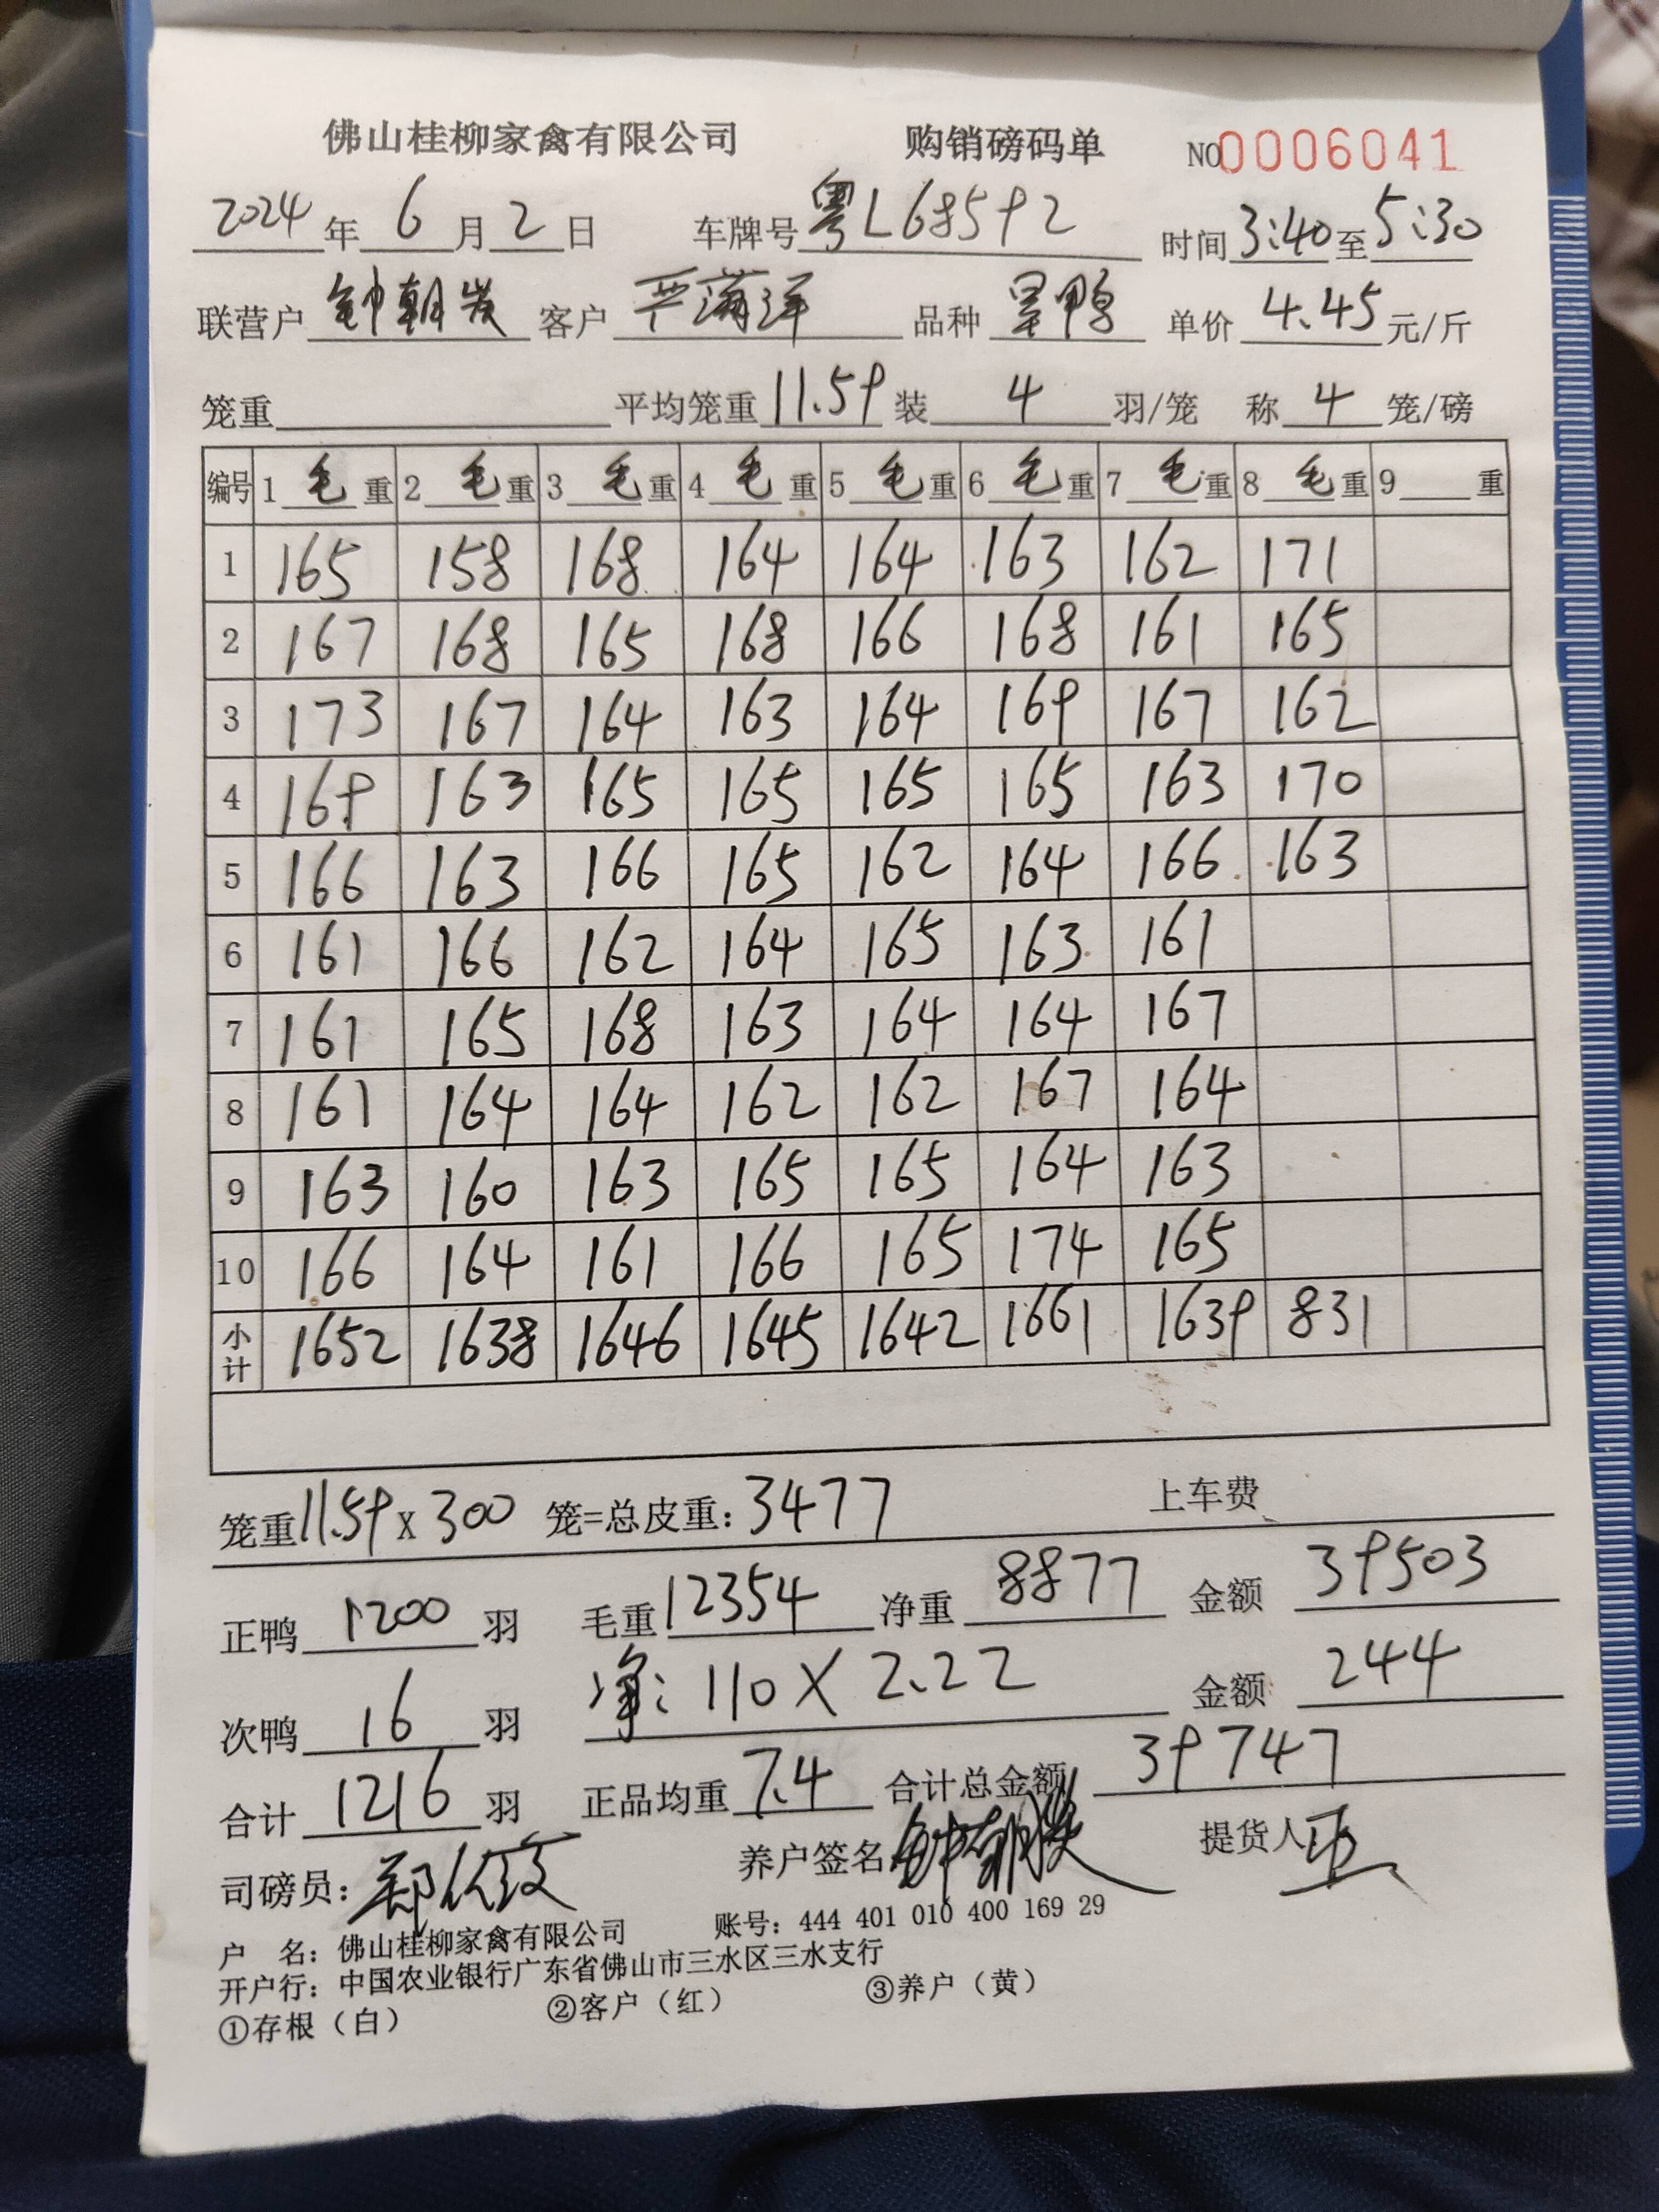 佛山桂柳家禽有限公司 购销磅码单 NO0006041
2024年6月2日 车牌号粤L68592 时间3:40至5:30
联营户 钟朝发 客户 严满洋 品种 鸭 单价 4.45元/斤
笼重 平均笼重11.59装 4 羽/笼 称 4 笼/磅
编号 1 毛重 2 毛重 3 毛重 4 毛重 5 毛重 6 毛重 7 毛重 8 毛重 9 重
1 165 158 168 164 164 163 162 171
2 167 168 165 168 166 168 161 165
3 173 167 164 163 164 169 167 162
4 169 163 165 165 165 165 163 170
5 166 163 166 165 162 164 166 163
6 161 166 162 164 165 163 161
7 161 165 168 163 164 164 167
8 161 164 164 162 162 167 164
9 163 160 163 165 165 164 163
10 166 164 161 166 165 174 165
小计 1652 1638 1646 1645 1642 1661 1639 831
笼重11.59x300 笼=总皮重:3477 上车费
正鸭 1200 羽 毛重12354 净重 8877 金额 39503
次鸭 16 羽 净:110X2.22 金额 244
合计 1216 羽 正品均重 7.4 合计总金额 39747
司磅员: 郑 养户签名 钟朝发 提货人
户 名: 佛山桂柳家禽有限公司 账号: 444 401 010 400 169 29
开户行: 中国农业银行广东省佛山市三水区三水支行
①存根(白) ②客户(红) ③养户(黄)